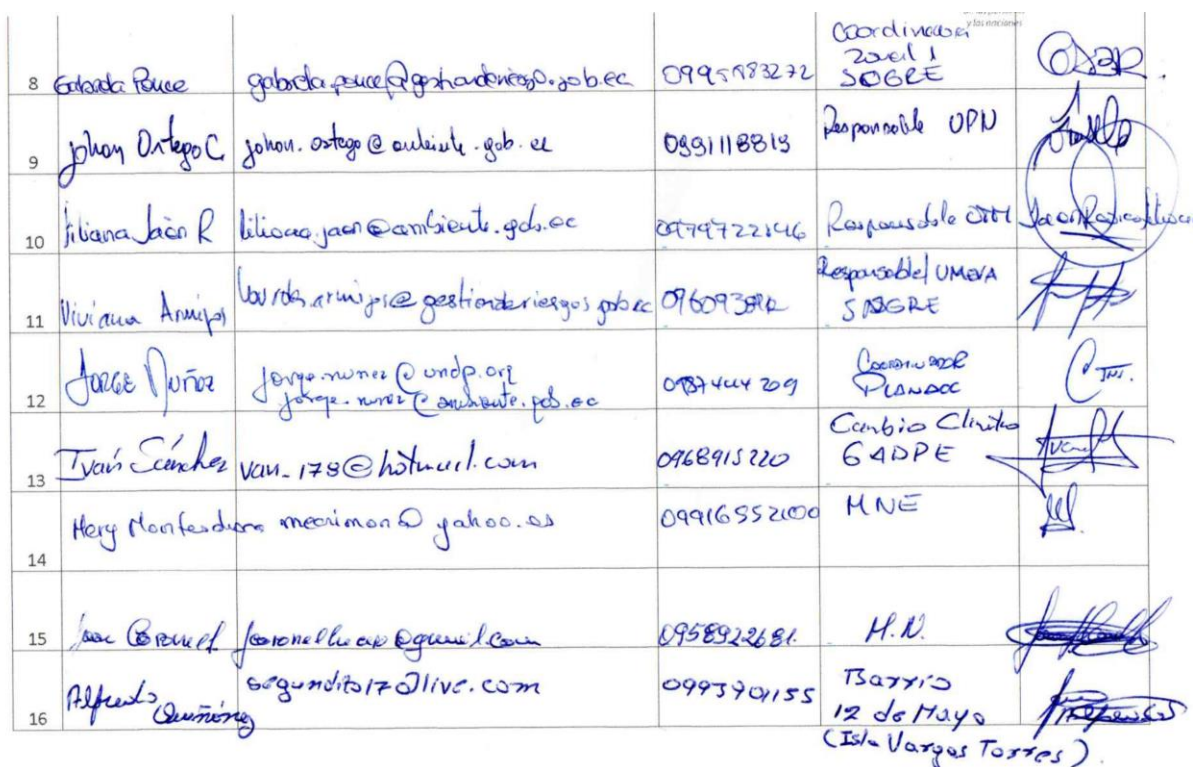 y las naciones
8 Gabriela Ponce gabriela.ponce@gestionderiesgo.gob.ec 0995583272 Coordinadora Zonal 1 SNGRE
9 Johan Ortego C. johan.ortego@ambiente.gob.ec 0991118819 Responsable UPN
10 Liliana Jaén R liliana.jaen@ambiente.gob.ec Responsable
11 Viviana Armijos lourdes.armijos@gestionderiesgos.gob.ec Responsable UMEVA SNGRE
12 JORGE NUÑEZ jorge.nunez@undp.org 0987444209 COORDINADOR PLANACC
jorge.nunez@ambiente.gob.ec
13 Iván Sánchez van_178@hotmail.com 0968915220 Cambio Climático GADPE
14 Mery mecrimon@yahoo.es 09916552100 MNE
15 Coronel 0958922681 M.N.
16 Alfredo Quiñónez segundito17@live.com 0993901155 Barrio
12 de Mayo
(Isla Vargas Torres)